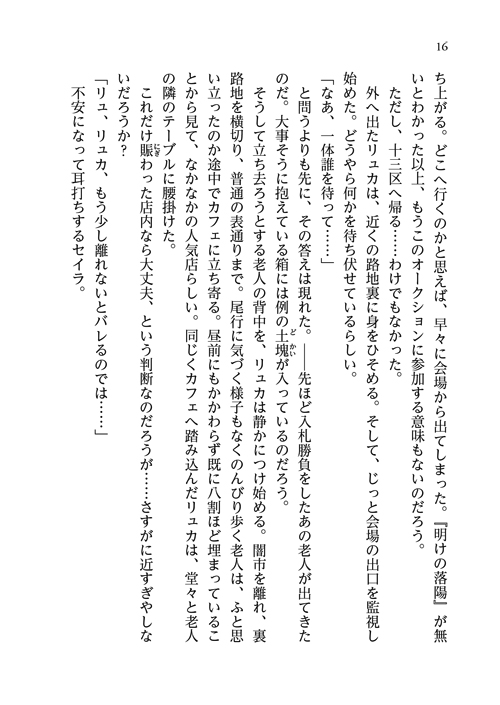 16
ち上がる。どこへ行くのかと思えば、早々に会場から出てしまった。『明けの落陽』が無
いとわかった以上、もうこのオークションに参加する意味もないのだろう。
ただし、十三区へ帰る……わけでもなかった。
外へ出たリュカは、近くの路地裏に身をひそめる。そして、じっと会場の出口を監視し
始めた。どうやら何かを待ち伏せているらしい。
「なあ、一体誰を待って……」
と問うよりも先に、その答えは現れた。――先ほど入札勝負をしたあの老人が出てきた
のだ。大事そうに抱えている箱には例の土塊どかいが入っているのだろう。
そうして立ち去ろうとする老人の背中を、リュカは静かにつけ始める。闇市を離れ、裏
路地を横切り、普通の表通りまで。尾行に気づく様子もなくのんびり歩く老人は、ふと思
い立ったのか途中でカフェに立ち寄る。昼前にもかかわらず既に八割ほど埋まっているこ
とから見て、なかなかの人気店らしい。同じくカフェへ踏み込んだリュカは、堂々と老人
の隣のテーブルに腰掛けた。
これだけ賑にぎわった店内なら大丈夫、という判断なのだろうが……さすがに近すぎやしな
いだろうか？
「リュ、リュカ、もう少し離れないとバレるのでは……」
不安になって耳打ちするセイラ。